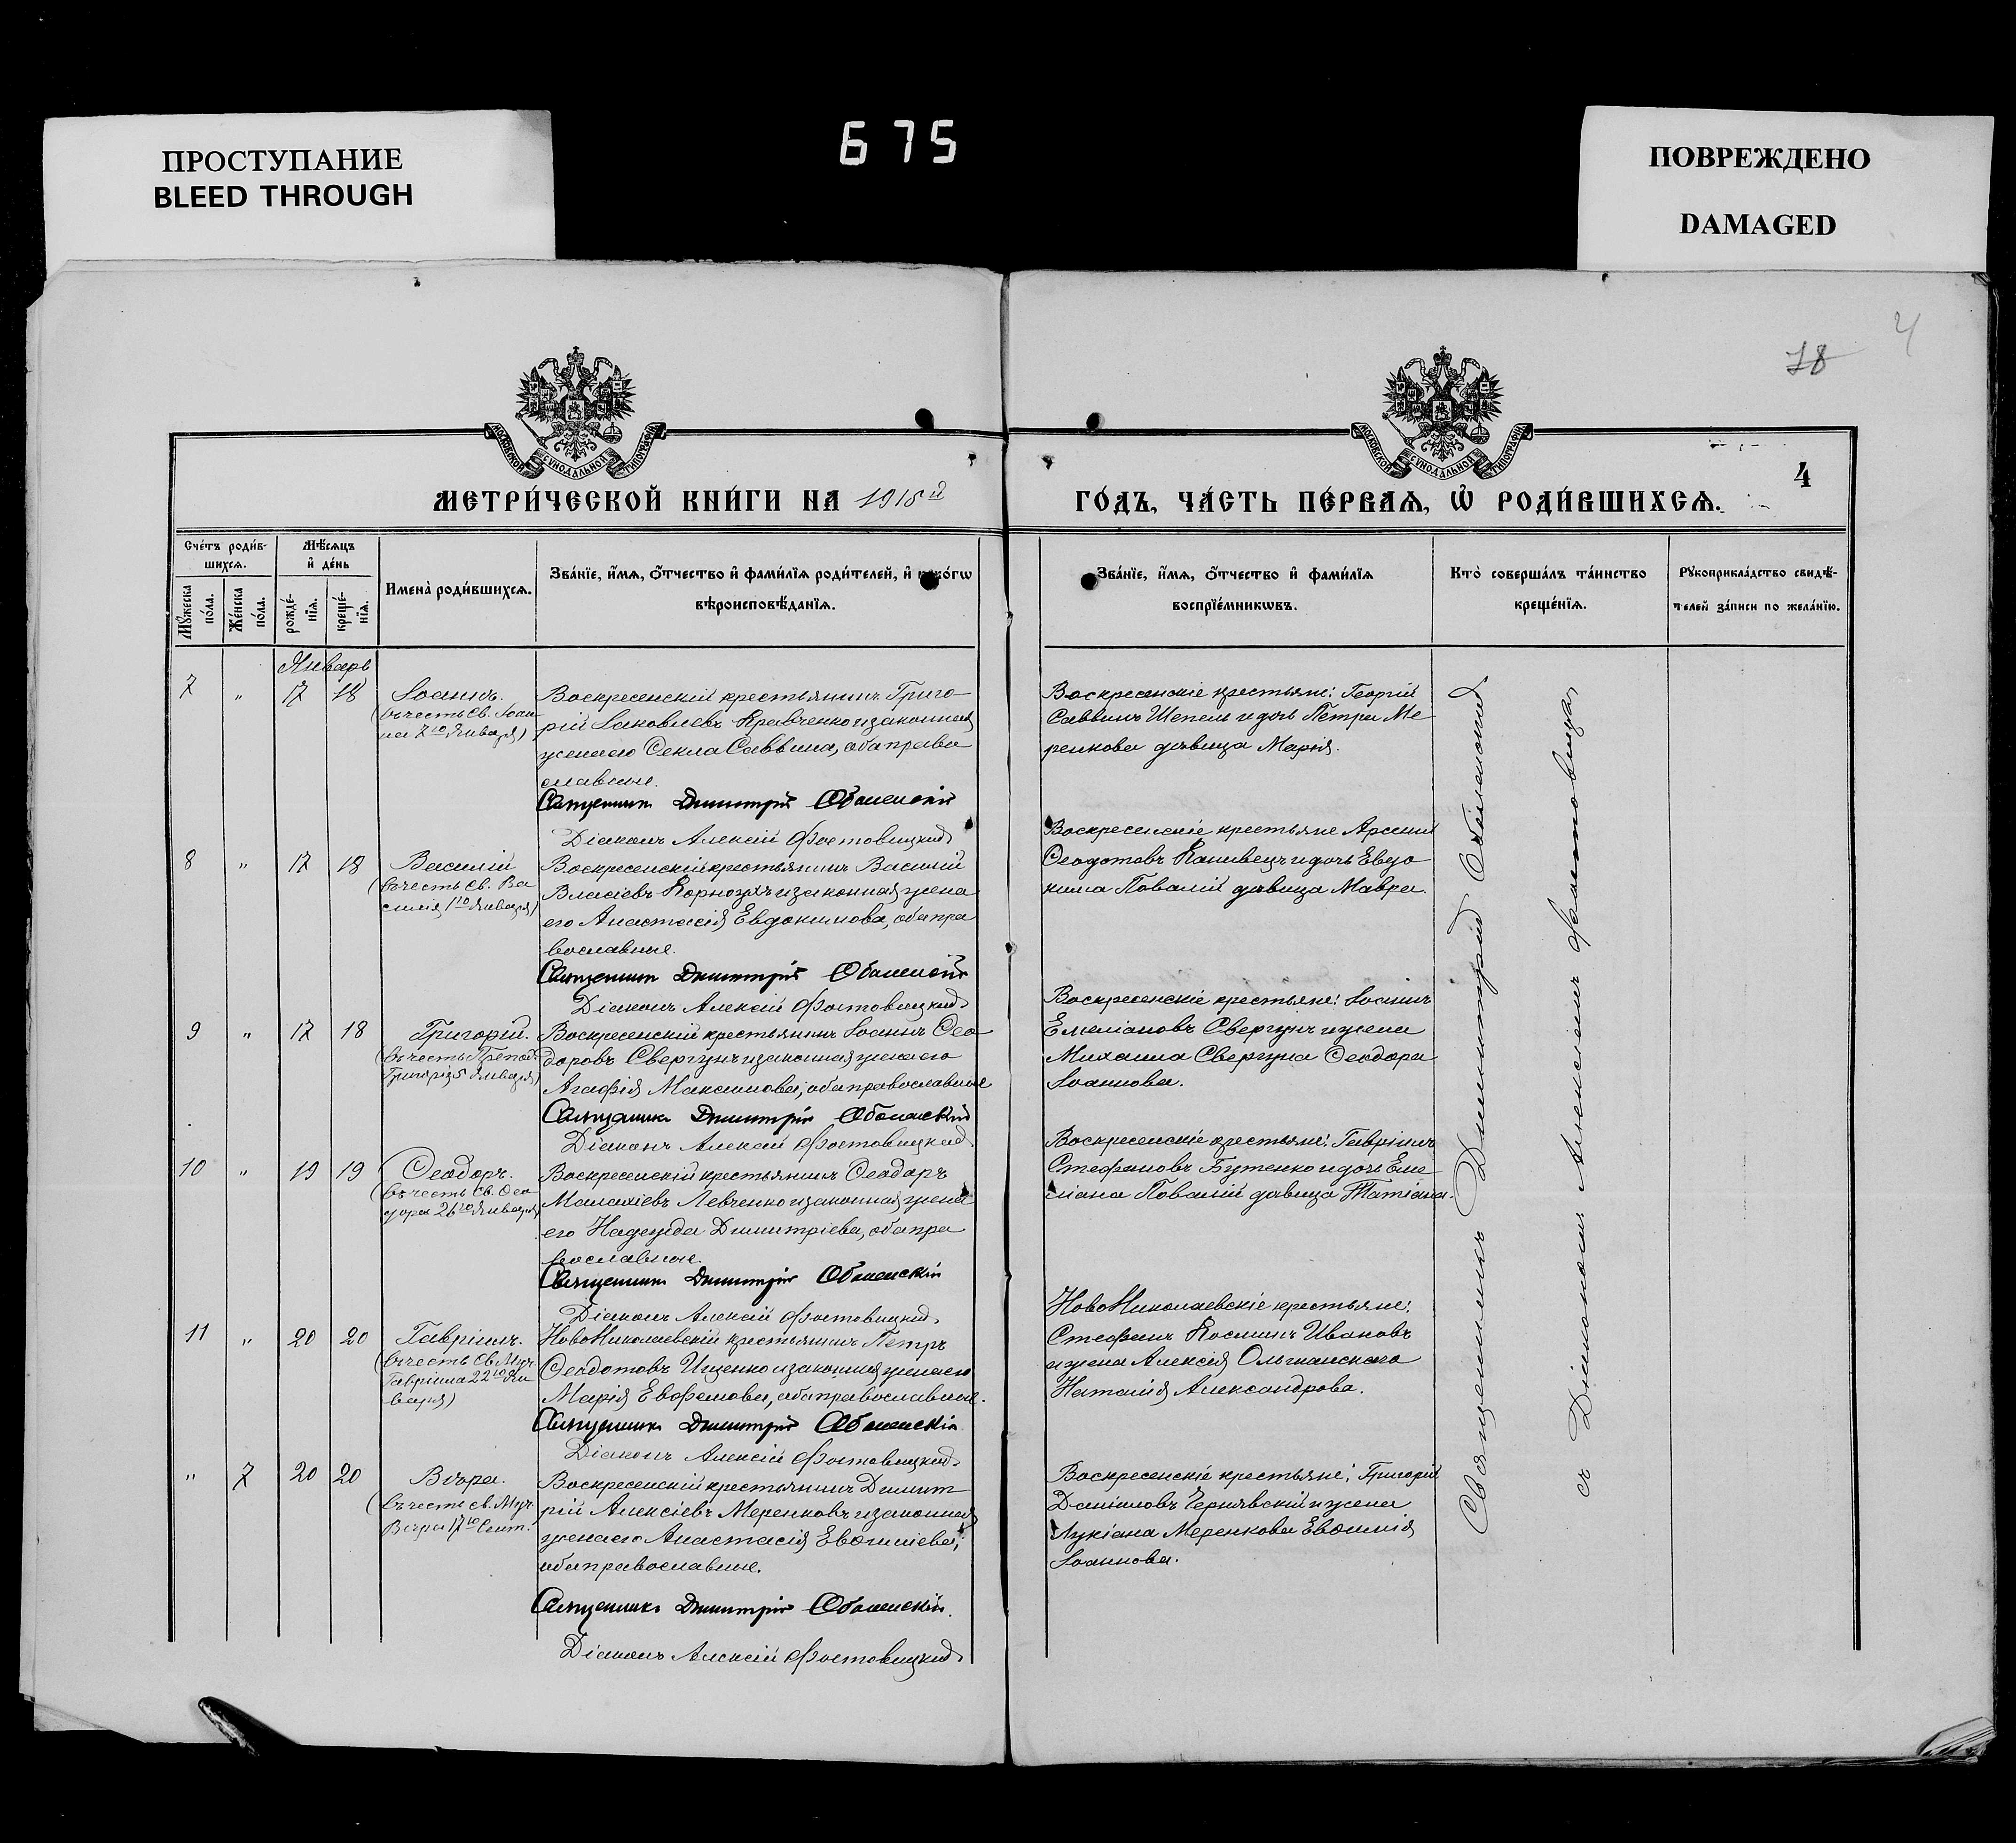 ПРОСТУПАНИЕ
BLEED THROUGH
675
ПОВРЕЖДЕНО
DAMAGED
4
78
МОСКОВСКОЙ СѴНОДАЛЬНОЙ ТИПОГРАФІИ
МОСКОВСКОЙ СѴНОДАЛЬНОЙ ТИПОГРАФІИ
4
МЕТРИ́ЧЕСКОЙ КНИ́ГИ НА 1915й
ГО́ДЪ, ЧА́СТЬ ПЕ́РВАѦ, Ѡ҆ РОДИ́ВШИХСѦ.
Сче́тъ роди́в-
шихсѧ.
Мꙋжеска по́ла.
Же́нска по́ла.
Мѣ́сѧцъ
и҆ де́нь
рожде́-
нїѧ.
креще́-
нїѧ.
Имена̀ роди́вшихсѧ.
Зва́нїе, и҆́мѧ, ѻ҆́тчество и҆ фами́лїѧ роди́телей, и҆ како́гѡ
вѣроисповѣ́данїѧ.
Зва́нїе, и҆́мѧ, ѻ҆́тчество и҆ фами́лїѧ
воспрїе́мникѡвъ.
Кто̀ соверша́лъ та́инство
креще́нїѧ.
Рꙋкоприкла́дство свидѣ́-
телей за́писи по жела́нїю.
Январь
7 " 17 18
Іоаннъ.
(въ честь Св. Іоан
на 7го Января)
Воскресенскій крестьянинъ Григо-
рій Іаковлевъ Кравченко и законная
жена его Ѳекла Саввина, оба право
славные.
Священникъ Димитрій Оболенскій
Діаконъ Алексій Фостовицкій
Воскресенскіе крестьяне: Георгій
Саввинъ Шепель и дочь Петра Ме
ренкова дѣвица Марія.
8 " 17 18
Василій
(въ честь Св. Ва
силія 1го Января)
Воскресенскій крестьянинъ Василій
Власіевъ и законная жена
его Анастасія Евдокимова, оба пра
вославные.
Священникъ Димитрій Оболенскій
Діаконъ Алексій Фостовицкій
Воскресенскіе крестьяне Арсеній
Ѳеодотовъ Каливецъ и дочь Евдо
кима Повалій дѣвица Мавра.
9 " 17 18
Григорій.
(въ честь Препод.
Григорія 5 Января)
Воскресенскій крестьянинъ Іоаннъ Ѳео
доровъ Свергунъ и законная жена его
Агафія Максимова, оба православные
Священникъ Димитрій Оболенскій
Діаконъ Алексій Фостовицкій
Воскресенскіе крестьяне: Іоаннъ
Емеліановъ Свергунъ и жена
Михаила Свергуна Ѳеодора
Іоаннова.
10 " 19 19
Ѳеодоръ.
(въ честь Св. Ѳео
дора 26го Января)
Воскресенскій крестьянинъ Ѳеодоръ
Малахіевъ Левченко и законная жена
его Надежда Димитріева, оба пра
вославные.
Священникъ Димитрій Оболенскій
Діаконъ Алексій Фостовицкій
Воскресенскіе крестьяне: Гавріилъ
Стефановъ Бутенко и дочь Еме
ліана Повалій дѣвица Татіана.
11 " 20 20
Гавріилъ.
(въ честь Св. Муч.
Гавріила 22го Ян
варя)
НовоНиколаевскій крестьянинъ Петръ
Ѳеодотовъ Ищенко и законная жена его
Марія Евфемова, оба православные.
Священникъ Димитрій Оболенскій
Діаконъ Алексій Фостовицкій
НовоНиколаевскіе крестьяне:
Стефанъ Космынъ Ивановъ
и жена Алексія Ольшанскаго
Наталія Александрова.
" 7 20 20
Вѣра.
(въ честь Св. Муч.
Вѣры 17го Сент.
Воскресенскій крестьянинъ Димит
рій Алексіевъ Меренковъ и законная
жена его Анастасія Евѳиміева,
оба православные.
Священникъ Димитрій Оболенскій.
Діаконъ Алексій Фостовицкій
Воскресенскіе крестьяне: Григорій
Даніиловъ Чернявскій и жена
Лукіана Меренкова Евѳимія
Іоаннова.
Священникъ Димитрій Оболенскій
съ Діакономъ Алексіемъ Фостовицкимъ